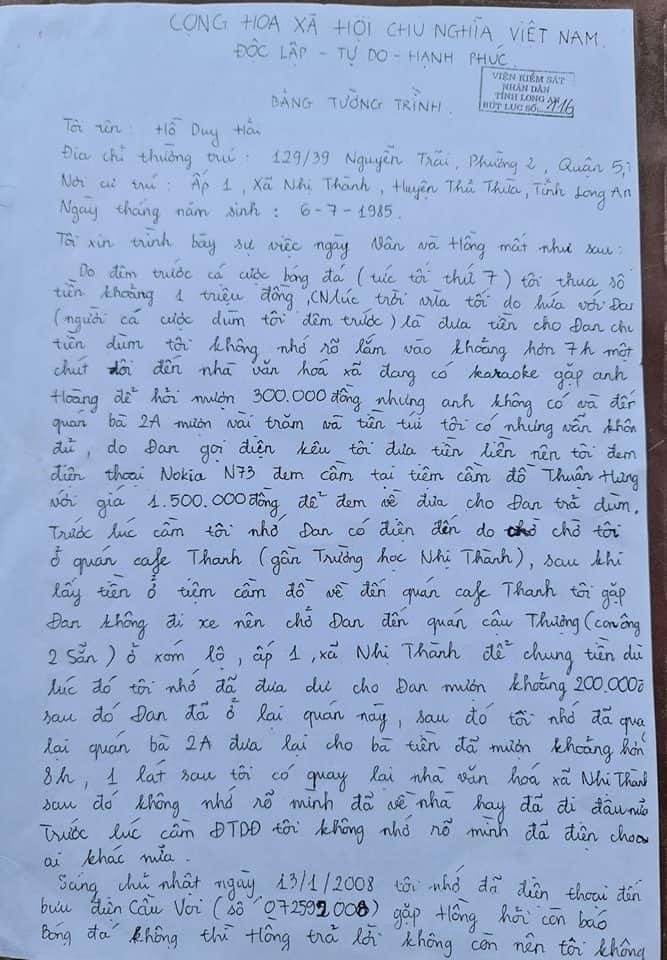 CỘNG HOÀ XÃ HỘI CHỦ NGHĨA VIỆT NAM
ĐỘC LẬP - TỰ DO - HẠNH PHÚC
VIỆN KIỂM SÁT
NHÂN DÂN
TỈNH LONG
BÚT LỤC SỐ: 16
BẢNG TƯỜNG TRÌNH
Tôi tên : Hồ Duy Hải
Địa chỉ thường trú : 129/39 Nguyễn Trãi, Phường 2, Quận 5,
Nơi cư trú : Ấp 1, Xã Nhị Thành, Huyện Thủ Thừa, Tỉnh Long An
Ngày tháng năm sinh : 6-7-1985.
Tôi xin trình bày sự việc ngày Vân và Hồng mất như sau :
Do đêm trước cá cược bóng đá (tức tối thứ 7) tôi thua số
tiền khoảng 1 triệu đồng, CN lúc trời vừa tối do hứa với Đan
(người cá cược dùm tôi đêm trước) là đưa tiền cho Đan chi
tiền dùm tôi không nhớ rõ lắm vào khoảng hơn 7h một
chút tôi đến nhà văn hoá xã đang có karaoke gặp anh
Hoàng để hỏi mượn 300.000 đồng nhưng anh không có và đến
quán bà 2A mượn vài trăm và tiền túi tôi có nhưng vẫn khôn
đủ, do Đan gọi điện kêu tôi đưa tiền liền nên tôi đem
điện thoại Nokia N73 đem cầm tại tiệm cầm đồ Thuân Hưng
với giá 1.500.000 đồng để đem về đưa cho Đan trả dùm.
Trước lúc cầm tôi nhớ Đan có điện đến do chờ tôi
ở quán cafe Thanh (gần Trường học Nhị Thành), sau khi
lấy tiền ở tiệm cầm đồ về đến quán cafe Thanh tôi gặp
Đan không đi xe nên chở Đan đến quán cậu Thượng (con ông
2 Sẵn) ở xóm lộ, ấp 1, xã Nhị Thành để chung tiền độ
lúc đó tôi nhớ đã đưa dư cho Đan mượn khoảng 200.000đ
sau đó Đan đã ở lại quán này, sau đó tôi nhớ đã qua
lại quán bà 2A đưa lại cho bà tiền đã mượn khoảng hơn
8h, 1 lát sau tôi có quay lại nhà văn hoá xã Nhị Thành
sau đó không nhớ rõ mình đã về nhà hay đã đi đâu nữa
Trước lúc cầm ĐTDĐ tôi không nhớ rõ mình đã điện cho
ai khác nữa.
Sáng chủ nhật ngày 13/1/2008 tôi nhớ đã điện thoại đến
bưu điện Cầu Voi (số 072592008) gặp Hồng hỏi còn báo
Bóng đá không thì Hồng trả lời không còn nên tôi không